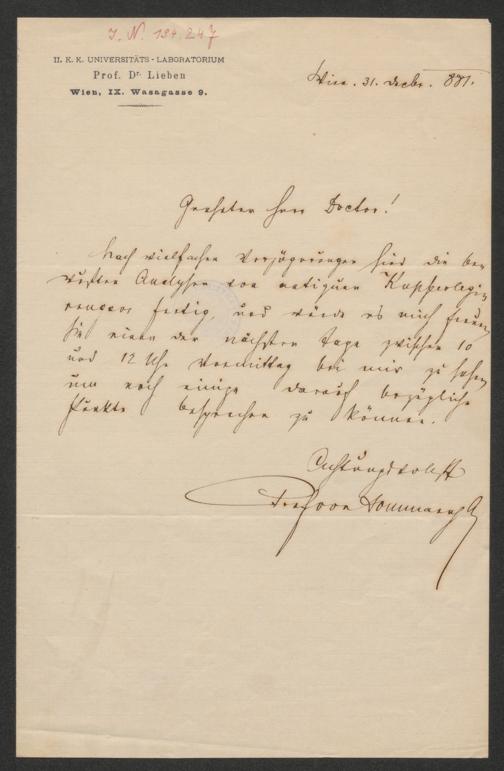 I. N. 194.247
II. K. K. UNIVERSITÄTS-LABORATORIUM
Prof. Dr. Lieben
Wien, IX. Wasagasse 9.
Wien. 31. Decbr. 881.
Geehrter Herr Doctor!
Nach vielfachen Verzögerungen sind die be-
wußten Analysen von antiquen Kupferlegi-
rungen fertig, und würde es mich freuen
Sie einen der nächsten Tage zwischen 10
und 12 Uhr Vormittag bei mir zu sehen
um noch einige darauf bezügliche
Punkte besprechen zu können.
Achtungsvollst